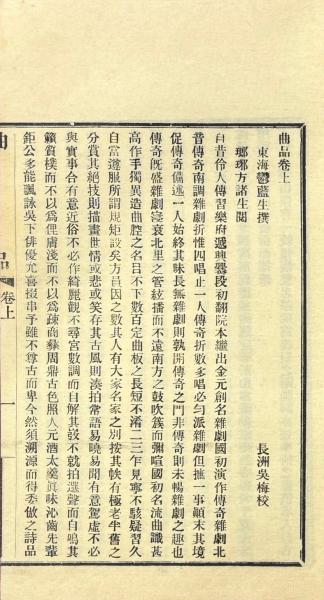 曲品卷上
東海鬱藍生撰
瑯琊方諸生閱
長洲吳梅校
自昔伶人傳習樂府遞興爨段初翻院本繼出金元創名雜劇國初演作傳奇雜劇北
音傳奇南調雜劇折惟四唱止一人傳奇折數多唱必勻派雜劇但摭一事顛末其境
促傳奇備述一人始終其味長無雜劇則孰開傳奇之門非傳奇則未暢雜劇之趣也
傳奇既盛雜劇寖衰北里之管絃播而不遠南方之鼓吹簇而彌喧國初名流曲識甚
高作手獨異造曲腔之名目不下數百定曲板之長短不淆二三乍見寧不駭疑習久
自當遵服所謂規矩設矣方員因之數其人有大家名家之別按其帙有極老半舊之
分賞其絕技則描畫世情或悲或笑存其古風則湊拍常語易曉易聞有意駕虛不必
與實事合有意近俗不必作綺麗觀不尋宮數調而自解其弢不就拍選聲而自鳴其
籟質樸而不以爲俚膚淺而不以爲疎商彝周鼎古色照人元酒太羹眞味沁齒先輩
鉅公多能諷詠吳下俳優尤喜掇串予雖不尊古而卑今然須溯源而得委倣之詩品
曲品
卷上
一